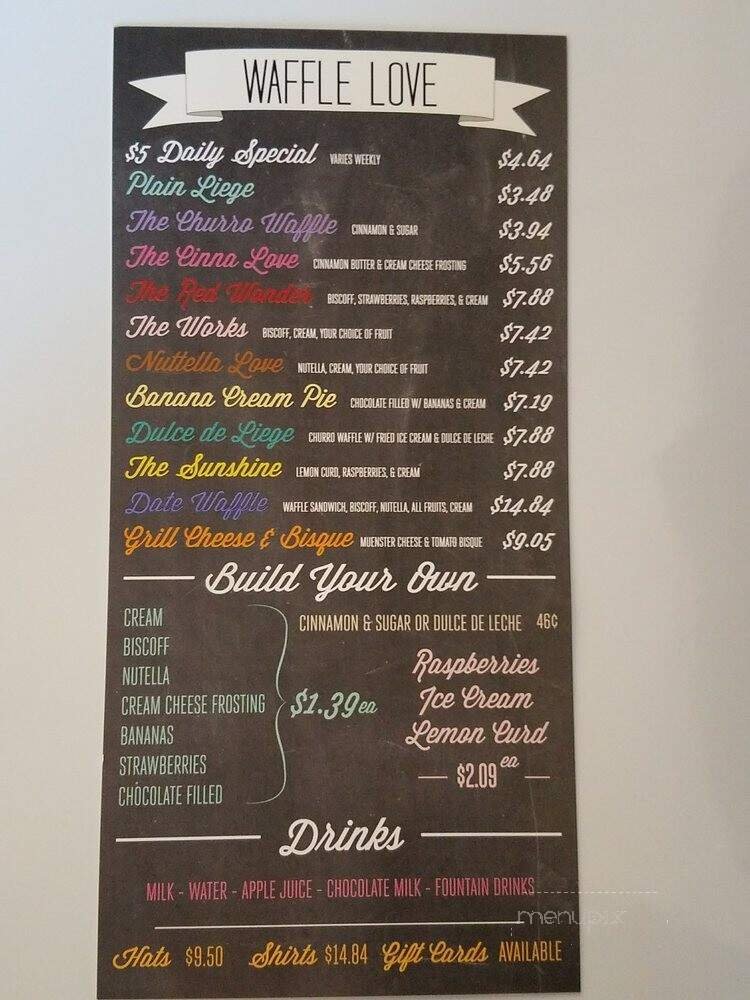 WAFFLE LOVE
$5 Daily Special VARIES WEEKLY $4.64
Plain Liege $3.48
The Churro Waffle CINNAMON & SUGAR $3.94
The Cinna Love CINNAMON BUTTER & CREAM CHEESE FROSTING $5.56
The Red Wonder BISCOFF, STRAWBERRIES, RASPBERRIES, & CREAM $7.88
The Works BISCOFF, CREAM, YOUR CHOICE OF FRUIT $7.42
Nuttella Love NUTELLA, CREAM, YOUR CHOICE OF FRUIT $7.42
Banana Cream Pie CHOCOLATE FILLED W/ BANANAS & CREAM $7.19
Dulce de Liege CHURRO WAFFLE W/ FRIED ICE CREAM & DULCE DE LECHE $7.88
The Sunshine LEMON CURD, RASPBERRIES, & CREAM $7.88
Date Waffle WAFFLE SANDWICH, BISCOFF, NUTELLA, ALL FRUITS, CREAM $14.84
Grill Cheese & Bisque MUENSTER CHEESE & TOMATO BISQUE $9.05
Build Your Own
CREAM
BISCOFF
NUTELLA
CREAM CHEESE FROSTING
BANANAS
STRAWBERRIES
CHOCOLATE FILLED
$1.39 ea
CINNAMON & SUGAR OR DULCE DE LECHE 46¢
Raspberries
Ice Cream
Lemon Curd
$2.09 ea
Drinks
MILK - WATER - APPLE JUICE - CHOCOLATE MILK - FOUNTAIN DRINKS
menupix
Hats $9.50 Shirts $14.84 Gift Cards AVAILABLE